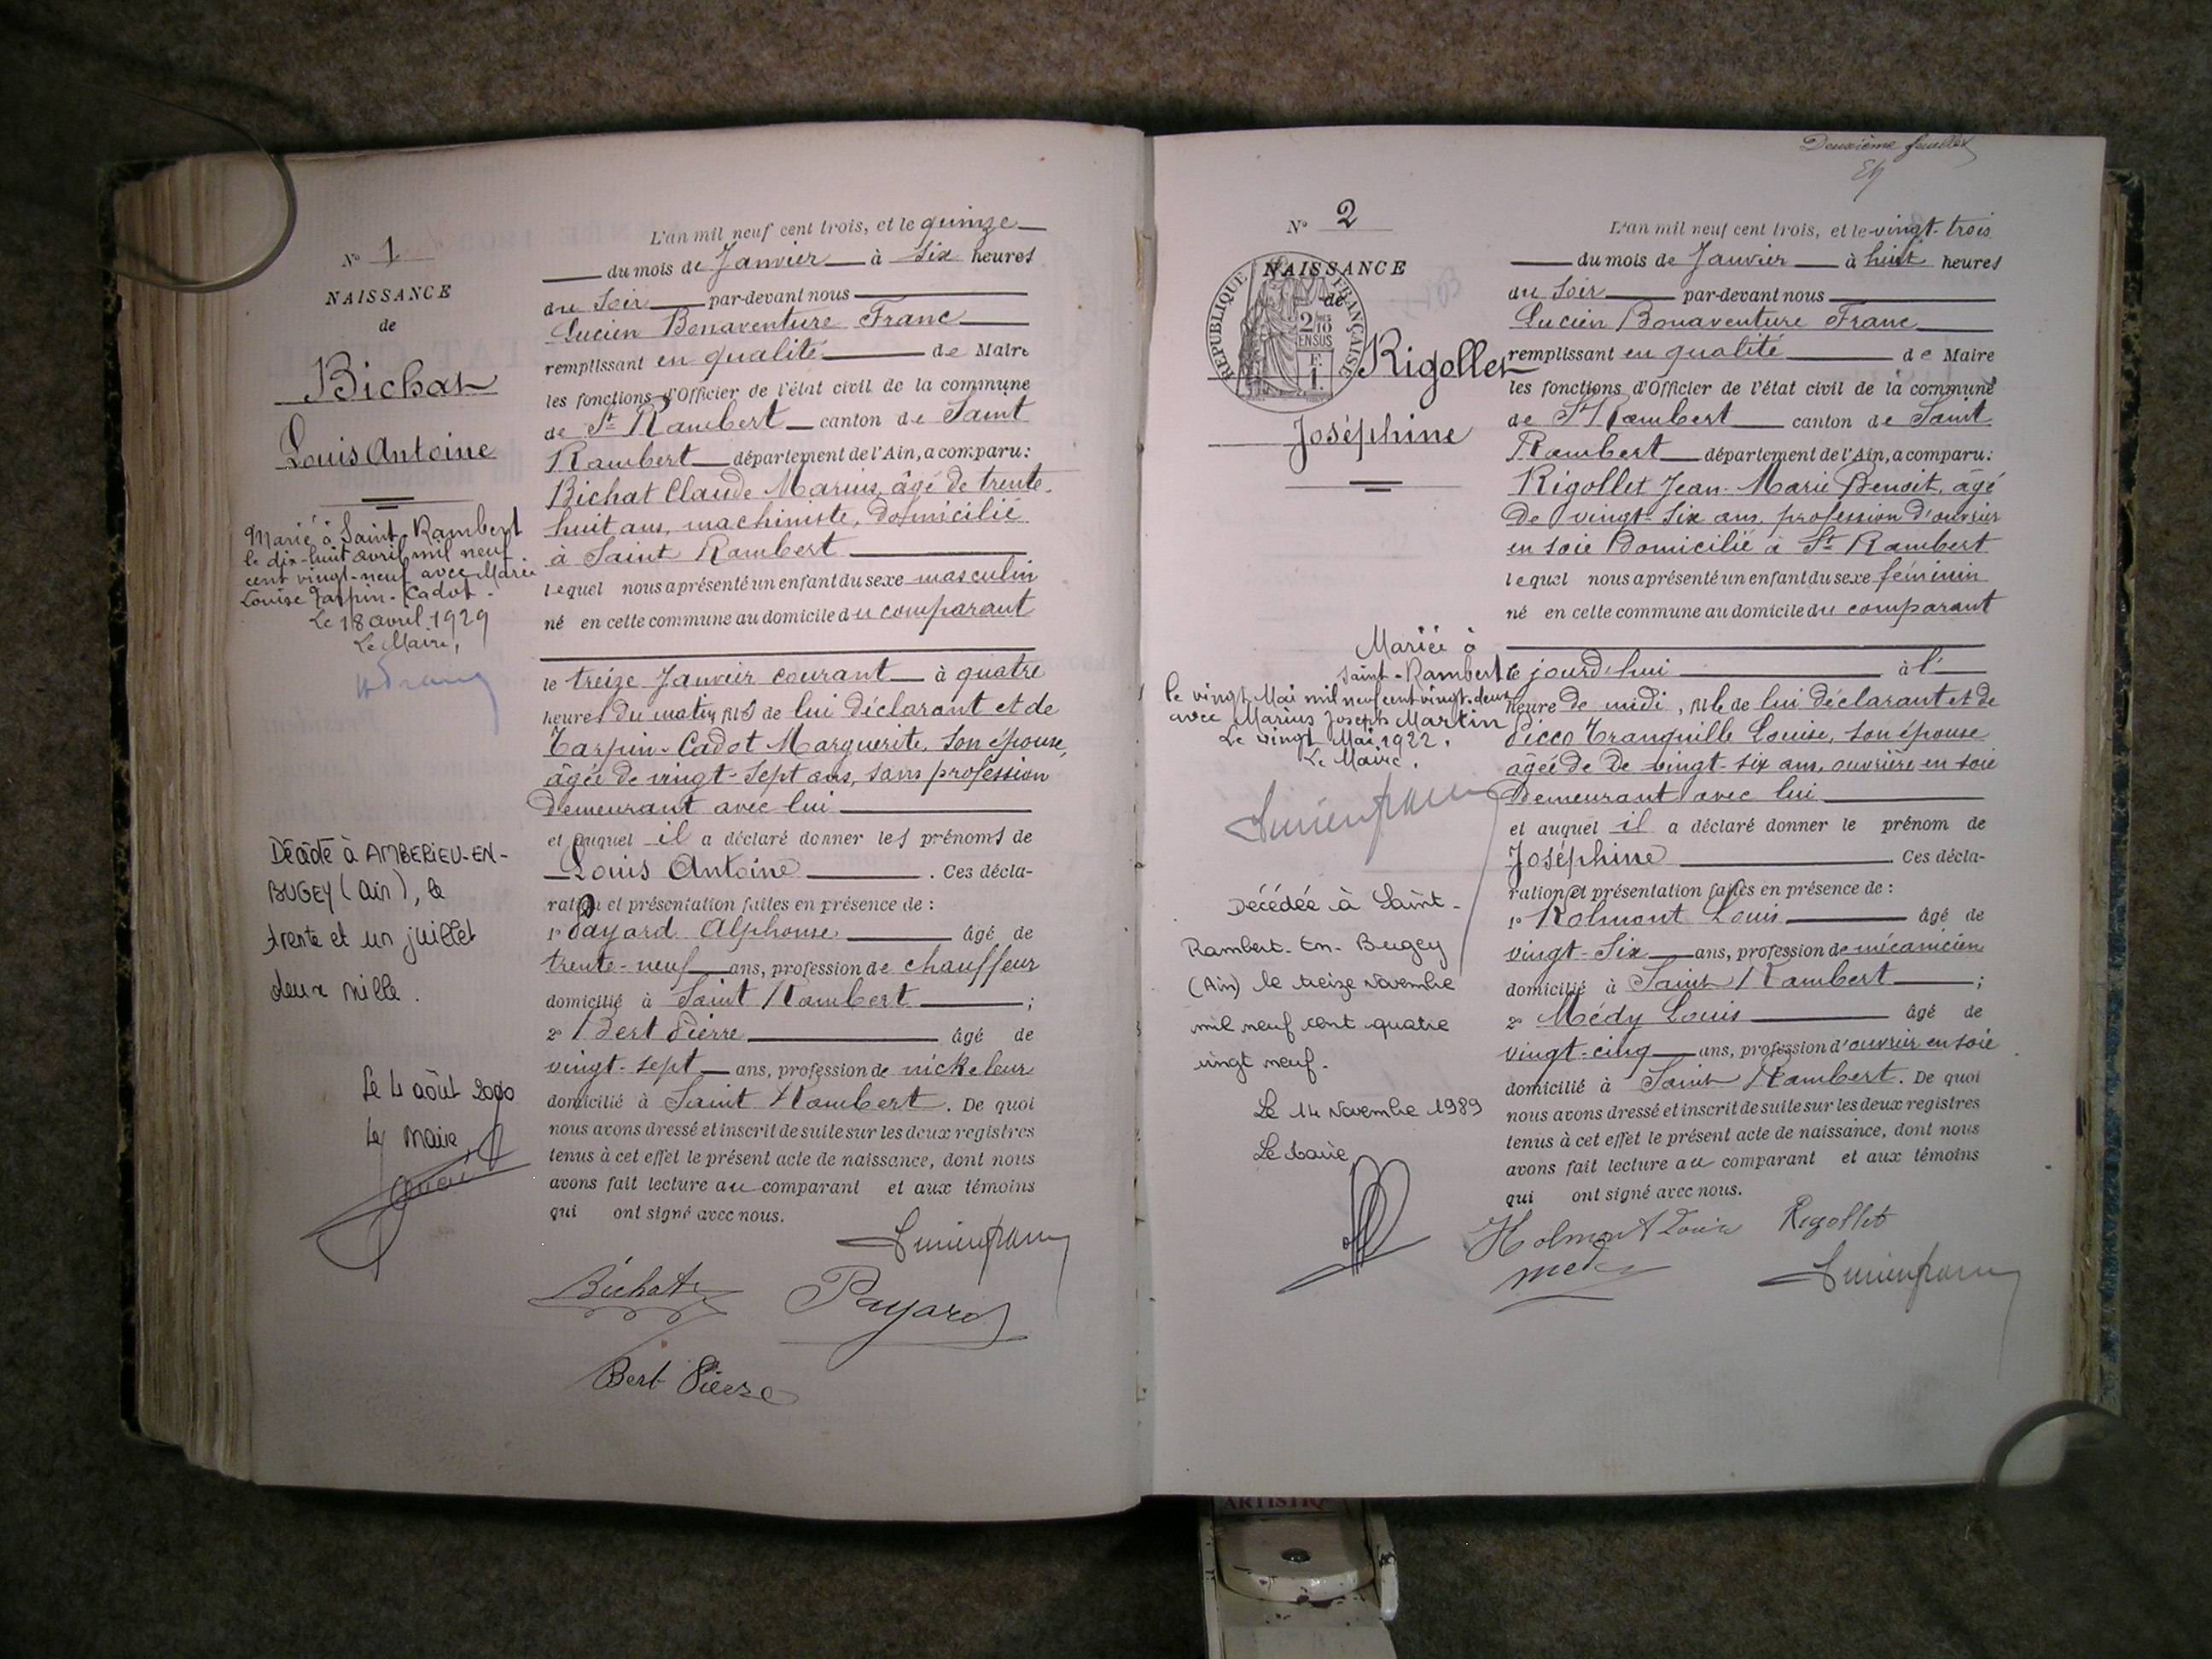 N° 1
NAISSANCE
de
Bichat
Louis Antoine
Marié à Saint-Rambert
le dix-huit avril mil neuf
cent vingt-neuf avec Marie
Louise Tarpin-Cadot.
Le 18 avril 1929
Le Maire,
Décédé à AMBERIEU-EN-
BUGEY (Ain), le
trente et un juillet
deux mille.
Le 4 août 2000
Le Maire
L'an mil neuf cent trois, et le quinze
du mois de Janvier à six heures
du soir par-devant nous
Lucien Bonaventure Franc
remplissant en qualité de Maire
les fonctions d'Officier de l'état civil de la commune
de St Rambert canton de Saint
Rambert département de l'Ain, a comparu:
Bichat Claude Marius, âgé de trente-
huit ans, machiniste, domicilié
à Saint Rambert
lequel nous a présenté un enfant du sexe masculin
né en cette commune au domicile du comparant
le treize Janvier courant à quatre
heures du matin, fils de lui déclarant et de
Tarpin-Cadot Marguerite, son épouse,
âgée de vingt-sept ans, sans profession
demeurant avec lui
et auquel il a déclaré donner les prénoms de
Louis Antoine. Ces décla-
ration et présentation faites en présence de:
1° Payard Alphonse âgé de
trente-neuf ans, profession de chauffeur
domicilié à Saint Rambert;
2° Bert Pierre âgé de
vingt-sept ans, profession de nickeleur
domicilié à Saint Rambert. De quoi
nous avons dressé et inscrit de suite sur les deux registres
tenus à cet effet le présent acte de naissance, dont nous
avons fait lecture au comparant et aux témoins
qui ont signé avec nous.
Lucien Franc
Bichat Payard
Bert Pierre
Deuxième feuillet
N° 2
NAISSANCE
de
REPUBLIQUE FRANÇAISE
2/10
EN SUS
Rigollet
Joséphine
Mariée à
Saint-Rambert
le vingt Mai mil neuf cent vingt-deux
avec Marius Joseph Martin
Le vingt Mai 1922.
Le Maire.
Lucien Franc
Décédée à Saint-
Rambert-En-Bugey
(Ain) le treize Novembre
mil neuf cent quatre
vingt neuf.
Le 14 Novembre 1989
Le Maire
L'an mil neuf cent trois, et le vingt-trois
du mois de Janvier à huit heures
du soir par-devant nous
Lucien Bonaventure Franc
remplissant en qualité de Maire
les fonctions d'Officier de l'état civil de la commune
de St Rambert canton de Saint
Rambert département de l'Ain, a comparu:
Rigollet Jean-Marie Benoit, âgé
de vingt-six ans, profession d'ouvrier
en soie domicilié à St Rambert
lequel nous a présenté un enfant du sexe féminin
né en cette commune au domicile du comparant
ce jourd'hui à l'
heure de midi, fille de lui déclarant et de
Picco Tranquille Louise, son épouse
agée de de vingt-six ans, ouvrière en soie
demeurant avec lui
et auquel il a déclaré donner le prénom de
Joséphine Ces décla-
ration et présentation faites en présence de:
1° Holmont Louis âgé de
vingt-six ans, profession de mécanicien
domicilié à Saint Rambert;
2° Médy Louis âgé de
vingt-cinq ans, profession d'ouvrier en soie
domicilié à Saint Rambert. De quoi
nous avons dressé et inscrit de suite sur les deux registres
tenus à cet effet le présent acte de naissance, dont nous
avons fait lecture au comparant et aux témoins
qui ont signé avec nous.
Holmont Louis Rigollet
Lucien Franc
ARTISTIQ